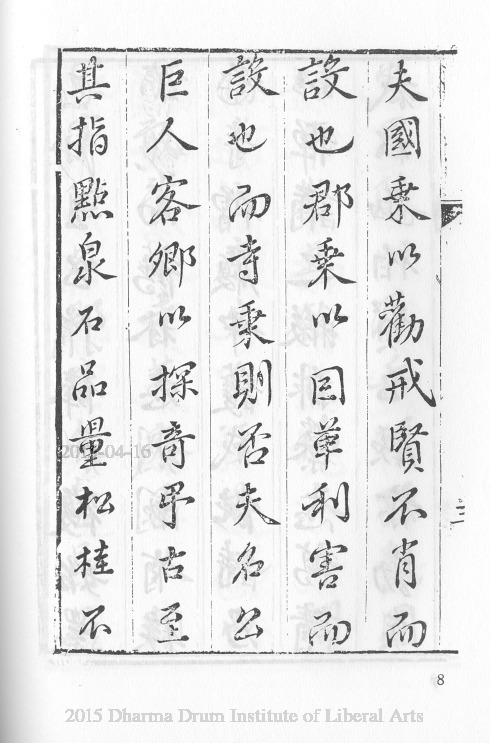 夫國乗以勸戒賢不肖而
設也郡乗以因革利害而
設也而寺乗則否夫名公
巨人客鄉以探奇弔古至
其指點泉石品量松桂不
三
8
2015 Dharma Drum Institute of Liberal Arts